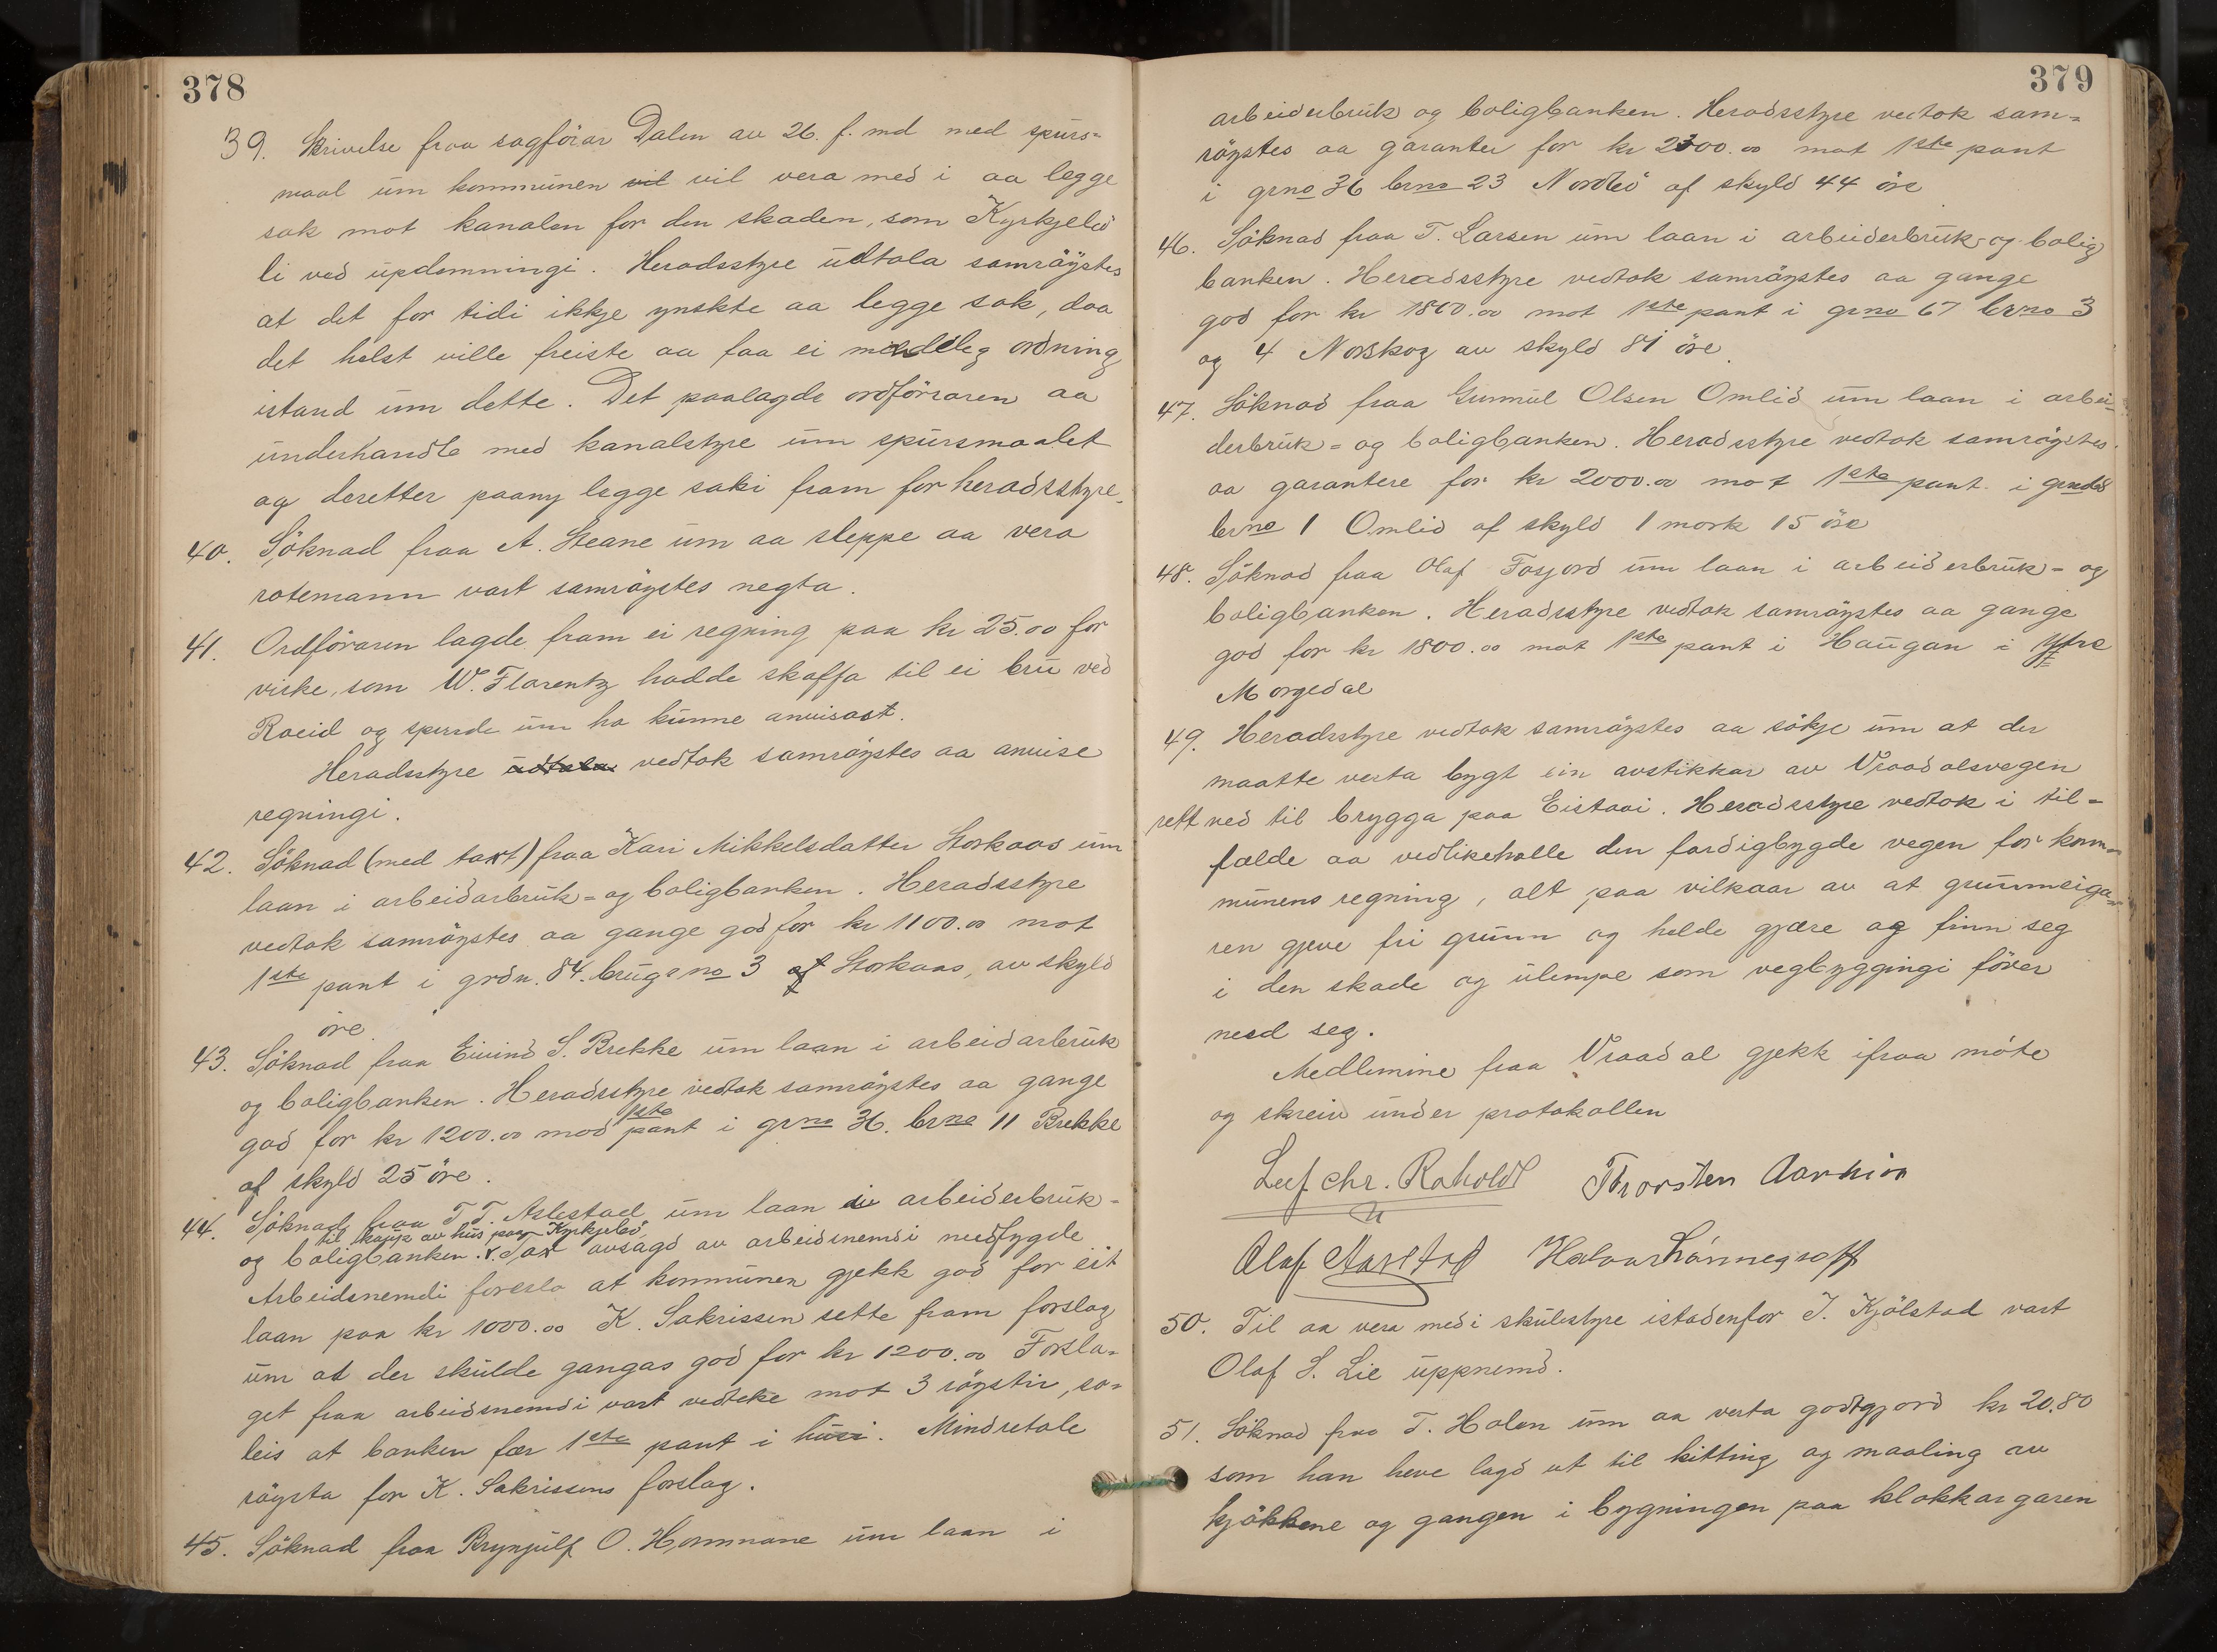 378
39. Skrivelse fraa sagförar Dalen av 26. f. md med spurs=
maal um kommunen vil vil vera med i aa legge
sak mot kanalen for den skaden, som Kyrkjebö
li ved updemningi. Heradsstyre udtala samröystes
at det for tidi ikkje ynskte aa legge sak, daa
det helst ville freiste aa faa ei mindeleg ordning
istand um dette. Det paalagde ordföraren aa
underhandle med kanalstyre um spursmaalet
og deretter paany legge saki fram for heradsstyre.
40. Söknad fraa A. Steane um aa sleppe aa vera
rotemann vart samröystes negta.
41. Ordföraren lagde fram ei regning paa kr 25.00 for
virke, som W. Florentz hadde skaffa til ei bru ved
Roeid og spurde um ho kunne anvisast.
Heradsstyre udtala vedtok samröystes aa anvise
regningi.
42. Söknad (med taxt) fraa Kari Mikkelsdatter Storkaas um
laan i arbeidarbruk= og boligbanken. Heradsstyre
vedtok samröystes aa gange god for kr 1100.00 mot
1ste pant i grdn. 84. brugsno 3 af Storkaas, av skyld
öre
43. Söknad fraa Eivind S. Brekke um laan i arbeidarbruk
og boligbanken. Heradsstyre vedtok samröystes aa gange
god for kr 1200.00 mod 1ste pant i grno 36. brno 11 Brekke
af skyld 25 öre.
44. Söknad fraa T. T. Aslestad um laan i arbeiderbruk-
til kaup av hus paa Kyrkjebö
og boligbanken. Tax avsagd av arbeidsnemdi medfygde
Arbeidsnemdi foreslo at kommunen gjekk god for eit
laan paa kr 1000.00 K. Sakrissen sette fram forslag
um at der skulde gangas god for kr 1200.00 Forsla=
get fraa arbeidsnemdi vart vedteke mot 3 röystir, so=
leis at banken fær 1ste pant i husi. Mindretale
röysta for K. Sakrissens forslag.
45. Söknad fraa Brynjulf O. Hommane um laan i
379
arbeiderbruk og boligbanken. Heradsstyre vedtok sam=
röystes aa garantere for kr 2300.00 mot 1ste pant
i grno 36 brno 23 Nordbö af skyld 44 öre
46. Söknad fraa T. Larsen um laan i arbeiderbruk- og bolig
banken. Heradsstyre vedtok samröystes aa gange
god for kr 1800.00 mot 1ste pant i grno 67 brno 3
og 4 Norskog av skyld 81 öre.
47. Söknad fraa Gunnul Olsen Omlid um laan i arbei=
derbruk= og boligbanken. Heradsstyre vedtok samröystes
aa garantere for kr 2000.00 mot 1ste pant i
brno 1 Omlid af skyld 1 mork 15 öre
48. Söknad fraa Olaf Fosjord um laan i arbeiderbruk= og
boligbanken. Heradsstyre vedtok samröystes aa gange
god for kr 1800.00 mot 1ste pant i Haugan i Yfre
Morgedal
49. Heradsstyre vedtok samröystes aa sökje um at der
maatte verta bygt ein avstikkar av Vraadalsvegen
rett ned til brygga paa Eistaai. Heradsstyre vedtok i til=
fælde aa vedlikehalle den fardigbygde vegen for kom=
munens regning, alt paa vilkaar av at grunneiga=
ren gjeve fri grunn og helde gjære og finn seg
i den skade og ulempe som vegbyggingi förer
med seg.
Medlemine fraa Vraadal gjekk ifraa möte
og skreiv under protokollen
Leif Chr. Roholdt Thorsten Aarhion
Olaf Aarstad Halvor Lönnegroff
50. Til aa vera med i skulestyre istadenfor J. Kjölstad vart
Olaf S. Lie uppnemd.
51. Söknad fraa T. Holen um aa verta godtgjord kr 20.80
som han heve lagd ut til kitting og maaling av
kjökkene og gangen i bygningen paa klokkargaren